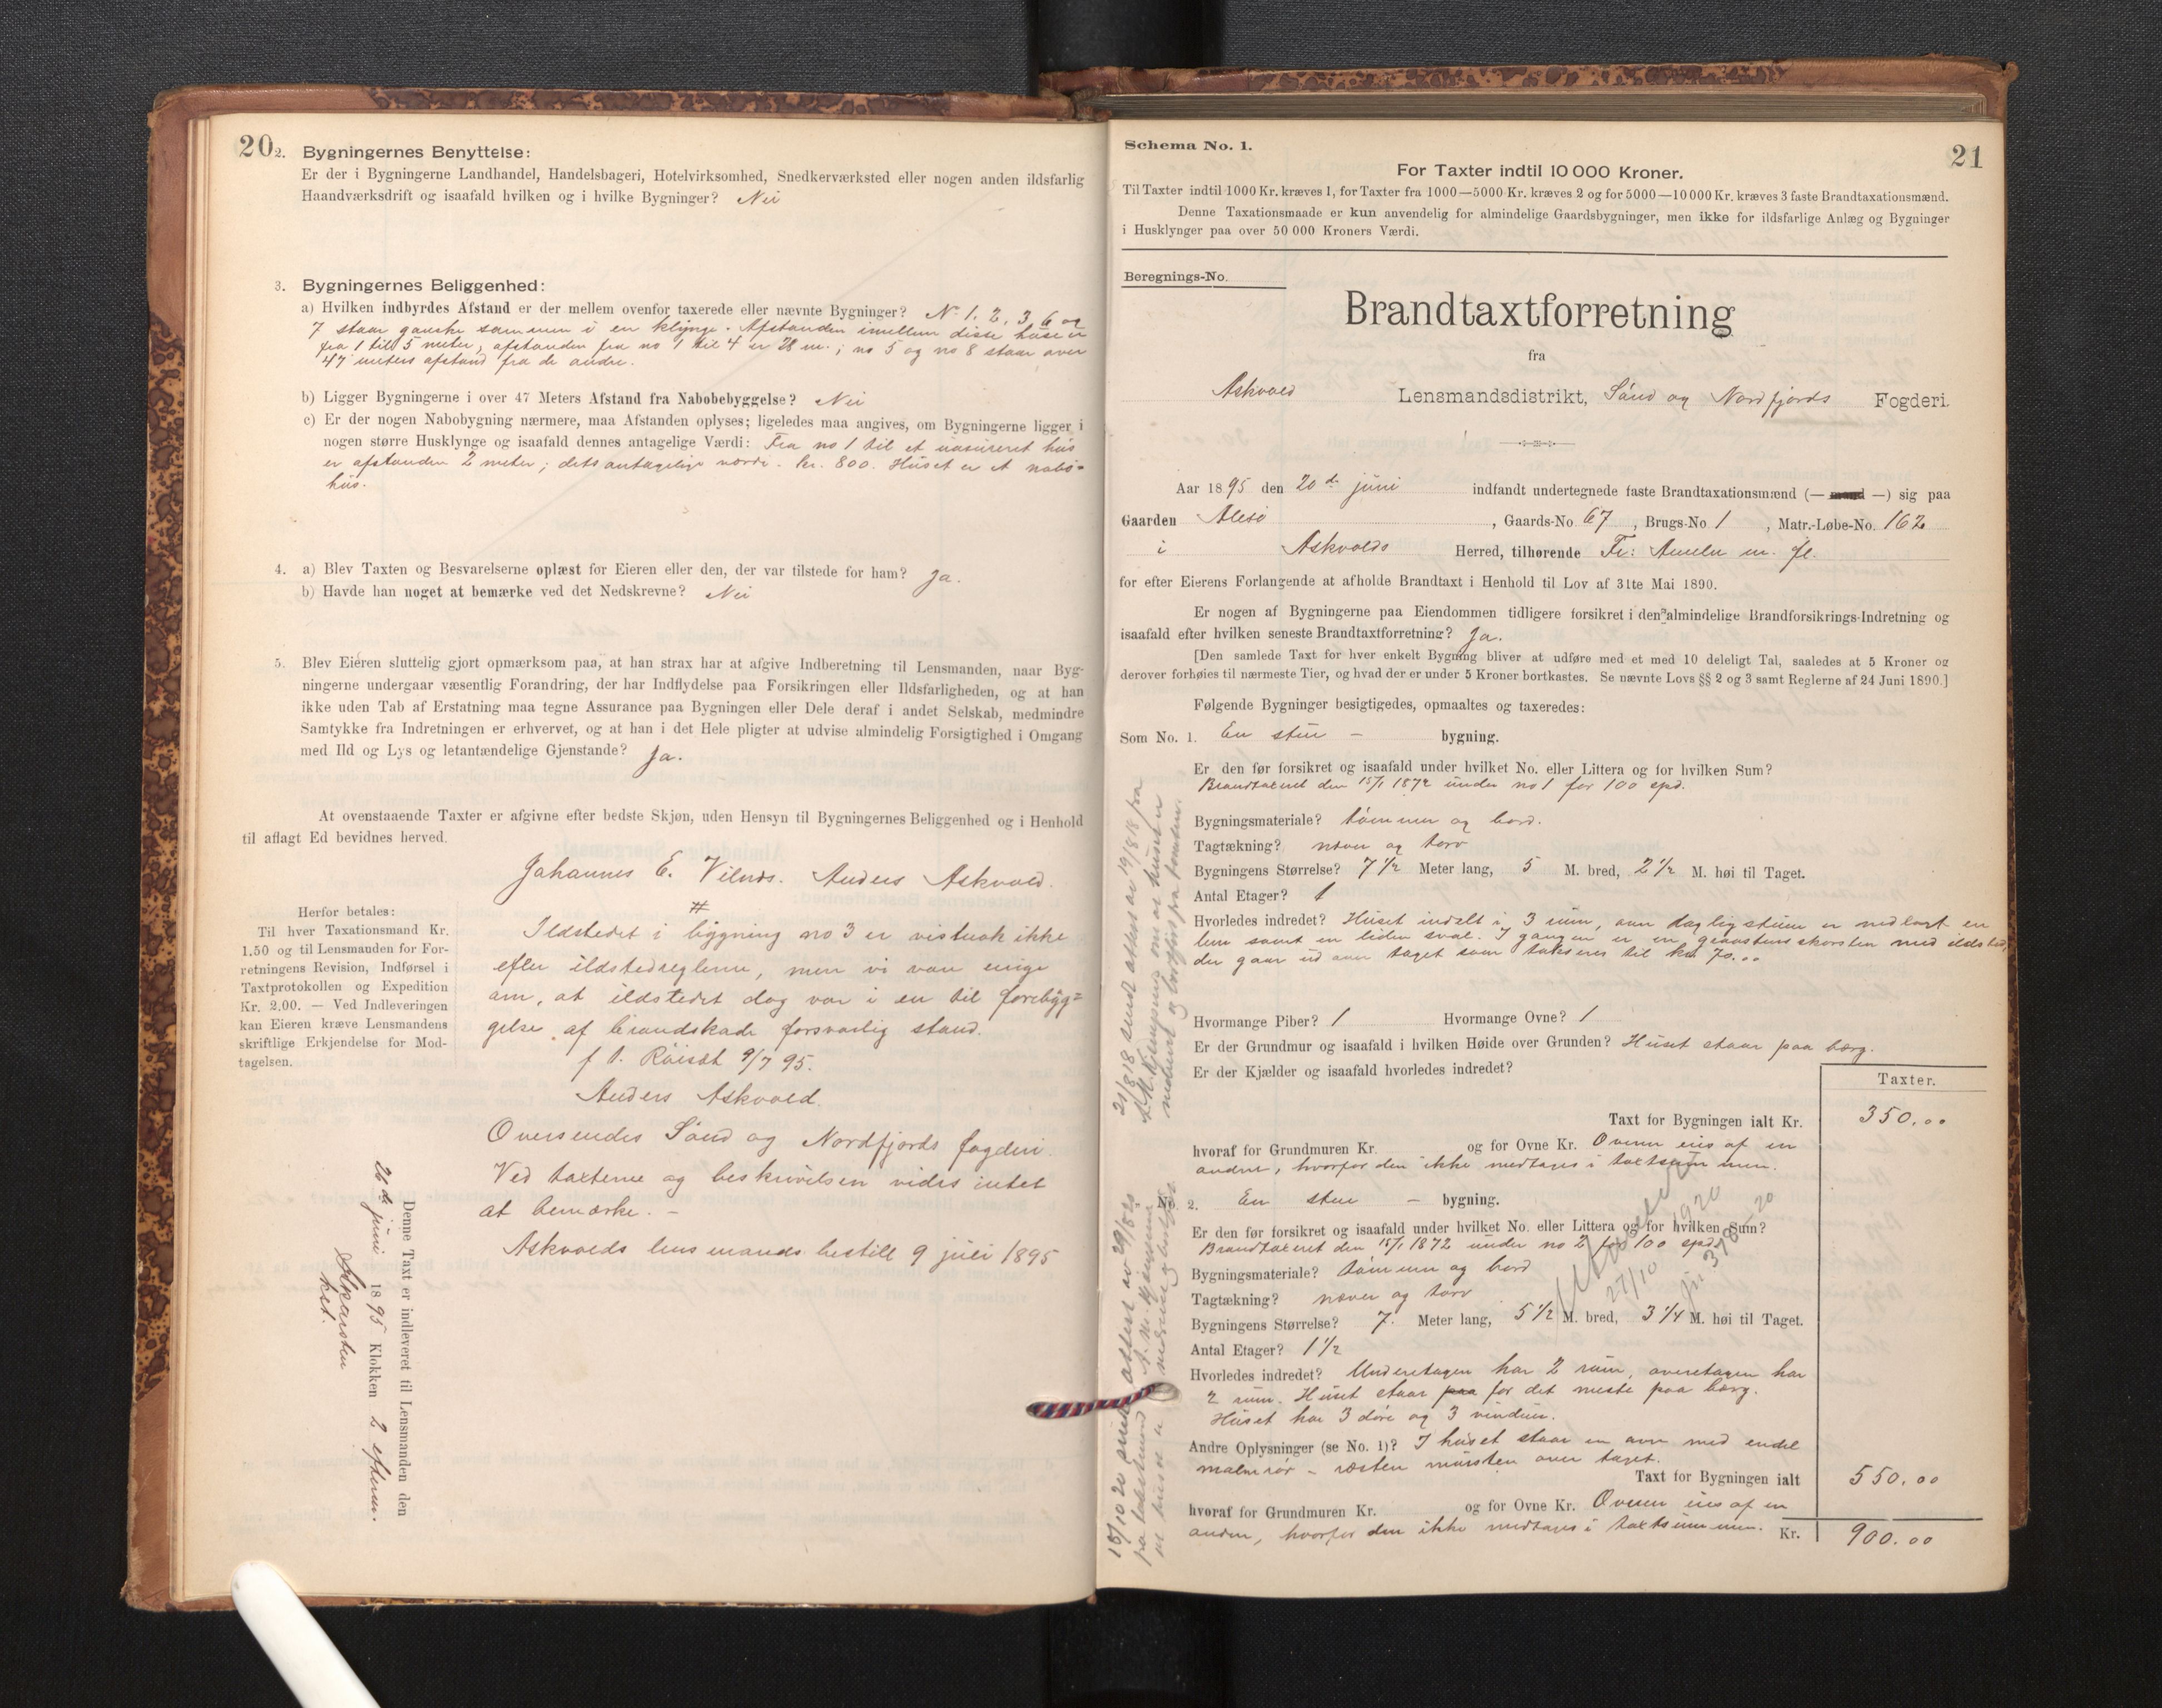 20
2. Bygningernes Benyttelse:
Er der i Bygningerne Landhandel, Handelsbageri, Hotelvirksomhed, Snedkerværksted eller nogen anden ildsfarlig
Haandværksdrift og isaafald hvilken og i hvilke Bygninger? Nei
3. Bygningernes Beliggenhed:
a) Hvilken indbyrdes Afstand er der mellem ovenfor taxerede eller nævnte Bygninger? No 1, 2, 3, 6 og
7 staar ganske sammen i en klynge. Afstanden imellem disse huse er
fra 1 til 5 meter, afstanden fra no 1 til 4 er 28 m.; no 5 og no 8 staar over
47 meters afstand fra de andre.
b) Ligger Bygningerne i over 47 Meters Afstand fra Nabobebyggelse? Nei
c) Er der nogen Nabobygning nærmere, maa Afstanden oplyses; ligeledes maa angives, om Bygningerne ligger i
nogen større Husklynge og isaafald dennes antagelige Værdi: Fra no 1 til et uasureret hus
er afstanden 2 meter; dets antagelige værdi kr. 800. Huset er et nabo-
hus.
4. a) Blev Taxten og Besvarelserne oplæst for Eieren eller den, der var tilstede for ham? Ja.
b) Havde han noget at bemærke ved det Nedskrevne? Nei
5. Blev Eieren sluttelig gjort opmærksom paa, at han strax har at afgive Indberetning til Lensmanden, naar Byg-
ningerne undergaar væsentlig Forandring, der har Indflydelse paa Forsikringen eller Ildsfarligheden, og at han
ikke uden Tab af Erstatning maa tegne Assurance paa Bygningen eller Dele deraf i andet Selskab, medmindre
Samtykke fra Indretningen er erhvervet, og at han i det Hele pligter at udvise almindelig Forsigtighed i Omgang
med Ild og Lys og letantændelige Gjenstande? Ja.
At ovenstaaende Taxter er afgivne efter bedste Skjøn, uden Hensyn til Bygningernes Beliggenhed og i Henhold
til aflagt Ed bevidnes herved.
Johannes E. Vilnæs. Anders Askvold.
Herfor betales:
Til hver Taxationsmand Kr.
1.50 og til Lensmanden for For-
retningens Revision, Indførsel i
Taxtprotokollen og Expedition
Kr. 2.00. — Ved Indleveringen
kan Eieren kræve Lensmandens
skriftlige Erkjendelse for Mod-
tagelsen.
#
Ildstedet i bygning no 3 er vistnok ikke
efter ildstedreglerne, men vi var enige
om, at ildstedet dog var i en til forebyg=
gelse af brandskade forsvarlig stand.
f. t. Röisæt 9/7 95.
Anders Askvold.
Oversendes Sönd og Nordfjords fogderi.
Ved taxterne og beskrivelsen vides intet
at bemærke. -
Askvolds lensmandsbestill 9 juli 1895
Denne Taxt er indleveret til Lensmanden den
26de juni 1895 Klokken 2 efterm.
21
Schema No. 1.
For Taxter indtil 10 000 Kroner.
Til Taxter indtil 1000 Kr. kræves 1, for Taxter fra 1000—5000 Kr. kræves 2 og for 5000—10 000 Kr. kræves 3 faste Brandtaxationsmænd.
Denne Taxationsmaade er kun anvendelig for almindelige Gaardsbygninger, men ikke for ildsfarlige Anlæg og Bygninger
i Husklynger paa over 50 000 Kroners Værdi.
Beregnings-No.
Brandtaxtforretning
fra
Askvold Lensmandsdistrikt, Sönd og Nordfjords Fogderi.
Aar 1895 den 20de juni indfandt undertegnede faste Brandtaxationsmænd (— mand —) sig paa
Gaarden Alesö, Gaards-No 67, Brugs-No 1, Matr.-Løbe-No. 162
i Askvolds Herred, tilhørende Fr: Ameln m. fl.
for efter Eierens Forlangende at afholde Brandtaxt i Henhold til Lov af 31te Mai 1890.
Er nogen af Bygningerne paa Eiendommen tidligere forsikret i den almindelige Brandforsikrings-Indretning og
isaafald efter hvilken seneste Brandtaxtforretning? Ja.
[Den samlede Taxt for hver enkelt Bygning bliver at udføre med et med 10 deleligt Tal, saaledes at 5 Kroner og
derover forhøies til nærmeste Tier, og hvad der er under 5 Kroner bortkastes. Se nævnte Lovs §§ 2 og 3 samt Reglerne af 24 Juni 1890.]
Følgende Bygninger besigtigedes, opmaaltes og taxeredes:
Som No. 1. En stue - bygning.
Er den før forsikret og isaafald under hvilket No. eller Littera og for hvilken Sum?
Brandtaxeret den 15/1 1872 under no 1 for 100 spd.
Bygningsmateriale? tömmer og bord.
Tagtækning? næver og torv
Bygningens Størrelse? 7 1/2 Meter lang, 5 M. bred, 2 1/2 M. høi til Taget.
Antal Etager? 1
Hvorledes indredet? Huset indelt i 3 rum, over daglig stuen er nedlagt en
lem samt en liden sval. I gangen er en graastensskorsten med ildsted,
der gaar ud over taget som takseres til kr 70.00
Hvormange Piber? 1 Hvormange Ovne? 1
Er der Grundmur og isaafald i hvilken Høide over Grunden? Huset staar paa bærg.
Er der Kjælder og isaafald hvorledes indredet?
Taxter.
Taxt for Bygningen ialt Kr. 350.00
hvoraf for Grundmuren Kr. og for Ovne Kr. Ovnen eies af en
anden, hvorfor den ikke medtages i taxtsummen.
No. 2. En stue - bygning.
Er den før forsikret og isaafald under hvilket No. eller Littera og for hvilken Sum?
Brandtaxeret den 15/1 1872 under no 2 for 100 spd.
Bygningsmateriale? tömmer og bord
Tagtækning? næver og torv
Bygningens Størrelse? 7. Meter lang, 5 1/2 M. bred, 3 1/4 M. høi til Taget.
Antal Etager? 1 1/2
Hvorledes indredet? Underetagen har 2 rum, overetagen har
2 rum. Huset staar paa for det meste paa bærg.
Huset har 3 döre og 3 vinduer.
Andre Oplysninger (se No. 1)? I huset staar en ovn med endel
malmrör - resten mursten over taget.
Taxt for Bygningen ialt 550.00
hvoraf for Grundmuren Kr. og for Ovne Kr. Ovnen eies af en
anden, hvorfor den ikke medtages i taxtsummen.
Kr. 900.00
27/10 1920
jr. 378-20